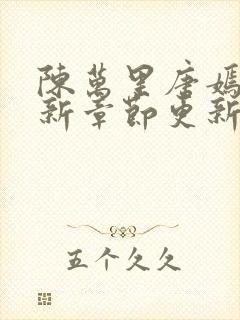 陳萬里唐嫣
新章節更新
五个久久